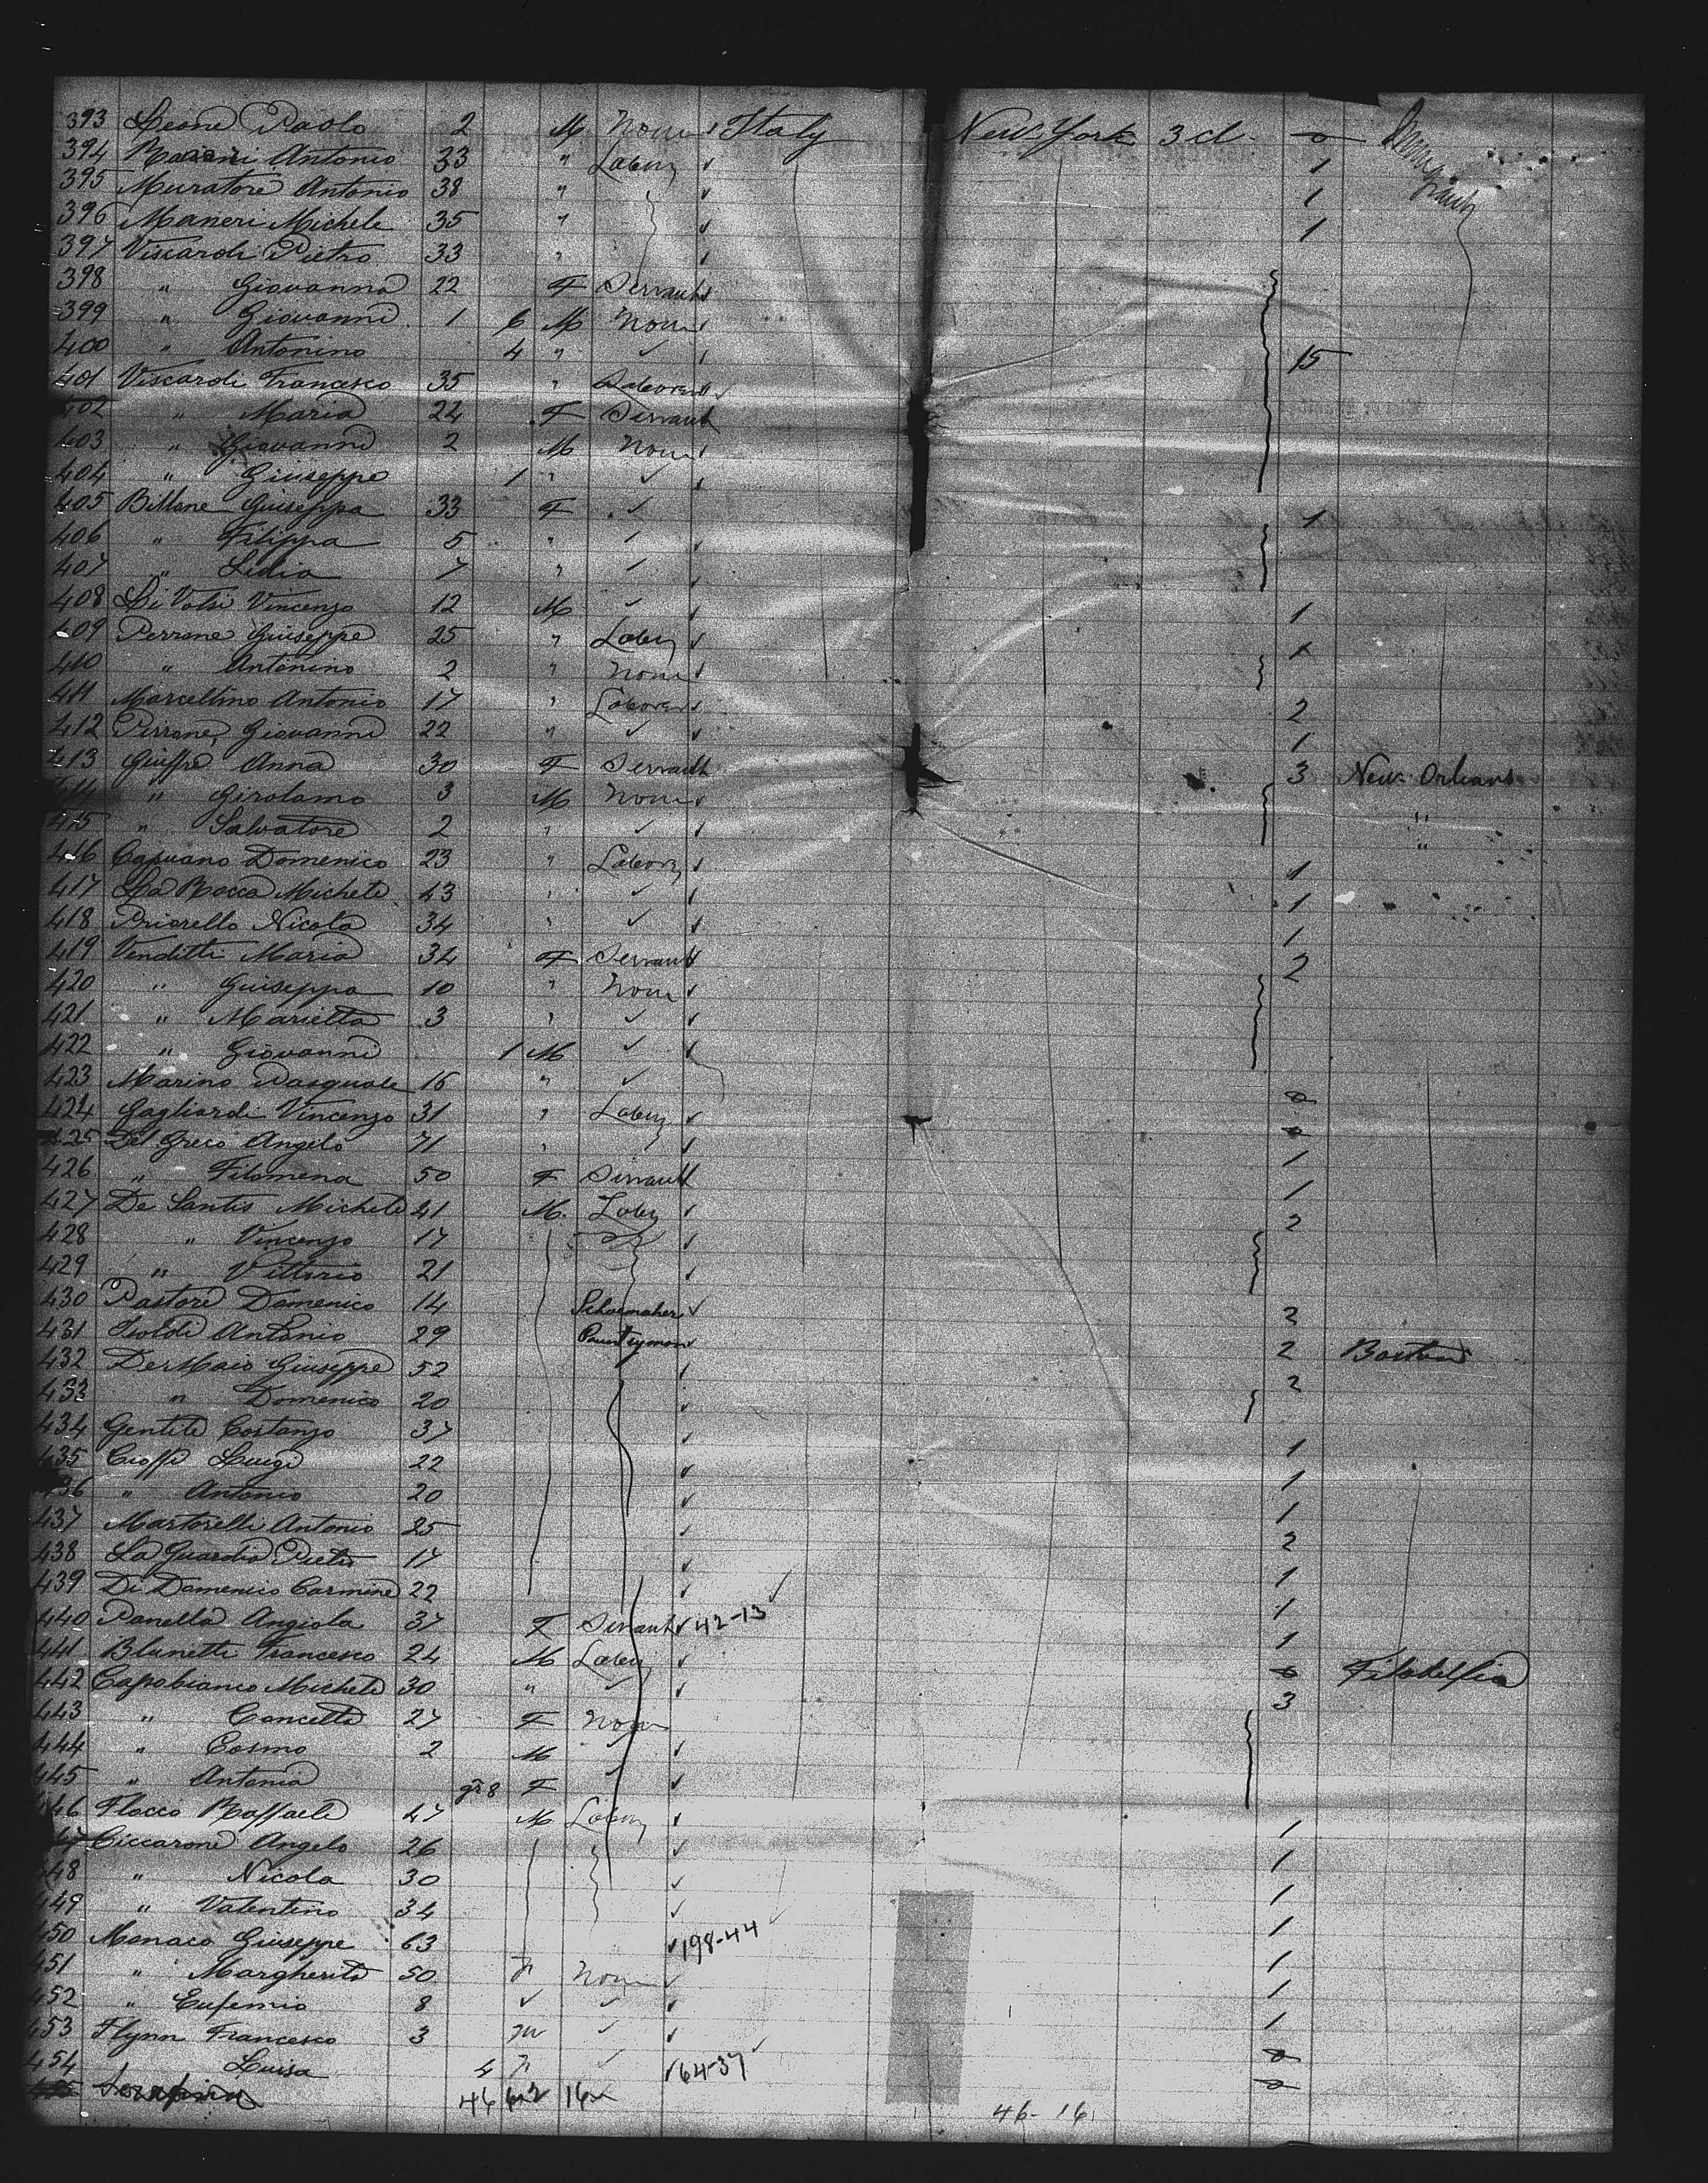 393 Leone Paolo 2 M None Italy New York 3 cl 0
394 Antonio 33 " Labory 1
395 Muratore Antonio 38 " 1
396 Maneri Michele 35 " 1
397 Viscardi Pietro 33 "
398 " Giovanna 22 F Servant
399 " Giovanni 1 6 M None
400 " Antonino 4 " ✓ 15
401 Viscardi Francesco 35 " Laborer
402 " Maria 24 F Servant
403 " Giovanni 2 M None
404 " Giuseppe 1 " ✓
405 Billone Giuseppa 33 F ✓ 1
406 " Filippa 5 " ✓
407 " Lidia 7 " ✓
408 Li Volsi Vincenzo 12 M ✓ 1
409 Perrone Giuseppe 25 " Labory 1
410 " Antonino 2 " None
411 Marcellino Antonio 17 " Laborer 2
412 Pirrone Giovanni 22 " ✓ 1
413 Giuffre Anna 30 F Servant 3 New Orleans
414 " Girolamo 3 M None "
415 " Salvatore 2 " ✓ "
416 Capuano Domenico 23 " Labory 1
417 La Rocca Michele 43 " ✓ 1
418 Priorello Nicola 34 " ✓ 1
419 Venditti Maria 34 F Servant 2
420 " Giuseppa 10 " None
421 " Marietta 3 " ✓
422 " Giovanni 1 M ✓
423 Marino Pasquale 16 " ✓ 0
424 Gagliardi Vincenzo 31 " Labory 0
425 Del Greco Angelo 71 " 1
426 " Filomena 50 F Servant 1
427 De Santis Michele 41 M Labory 2
428 " Vincenzo 17
429 " Vittorio 21
430 Pastore Domenico 14 Schoemaher 2
431 Isoldi Antonio 29 Countrymon 2 Boston
432 De Maio Giuseppe 52 2
433 " Domenico 20
434 Gentile Costanzo 37 1
435 Cioffi Luigi 22 1
436 " Antonio 20 1
437 Martorelli Antonio 25 2
438 La Guardia Pietro 17 1
439 Di Domenico Carmine 22 1
440 Panella Angiola 37 F Servant 42-13 1
441 Francesco 24 M Labory 0 Filadelfia
442 Capobianco Michele 30 " ✓ 3
443 " Concetta 27 F None
444 " Cosmo 2 M ✓
445 " Antonia 8 F ✓
446 Flocco Raffaele 47 M Labory 1
447 Ciccarone Angelo 26 1
448 " Nicola 30 1
449 " Valentino 34 1
450 Monaco Giuseppe 63 198-44 1
451 " Margherita 50 F None 1
452 " Eufemia 8 ✓ ✓ 1
453 Flynn Francesco 3 M ✓ 0
454 " Luisa 4 F ✓ 64-37 0
46 16
46-16